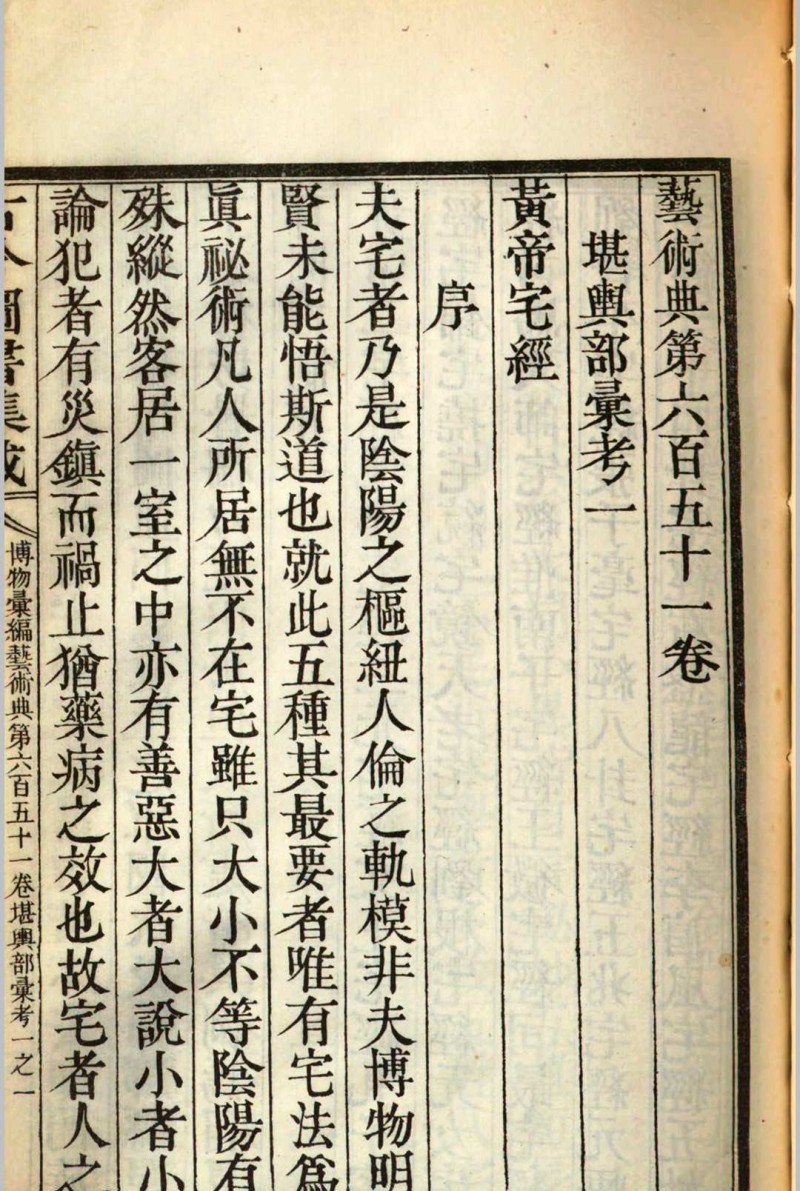 藝術典第六百五十一卷
堪輿部彙考一
黃帝宅經
序
夫宅者乃是陰陽之樞紐人倫之軌模非夫博物明
賢未能悟斯道也就此五種其最要者唯有宅法爲
眞祕術凡人所居無不在宅雖只大小不等陰陽有
殊縱然客居一室之中亦有善惡大者大說小者小
論犯者有災鎭而禍止猶藥病之效也故宅者人之
古今圖書集成
博物彙編藝術典第六百五十一卷堪輿部彙考一之一